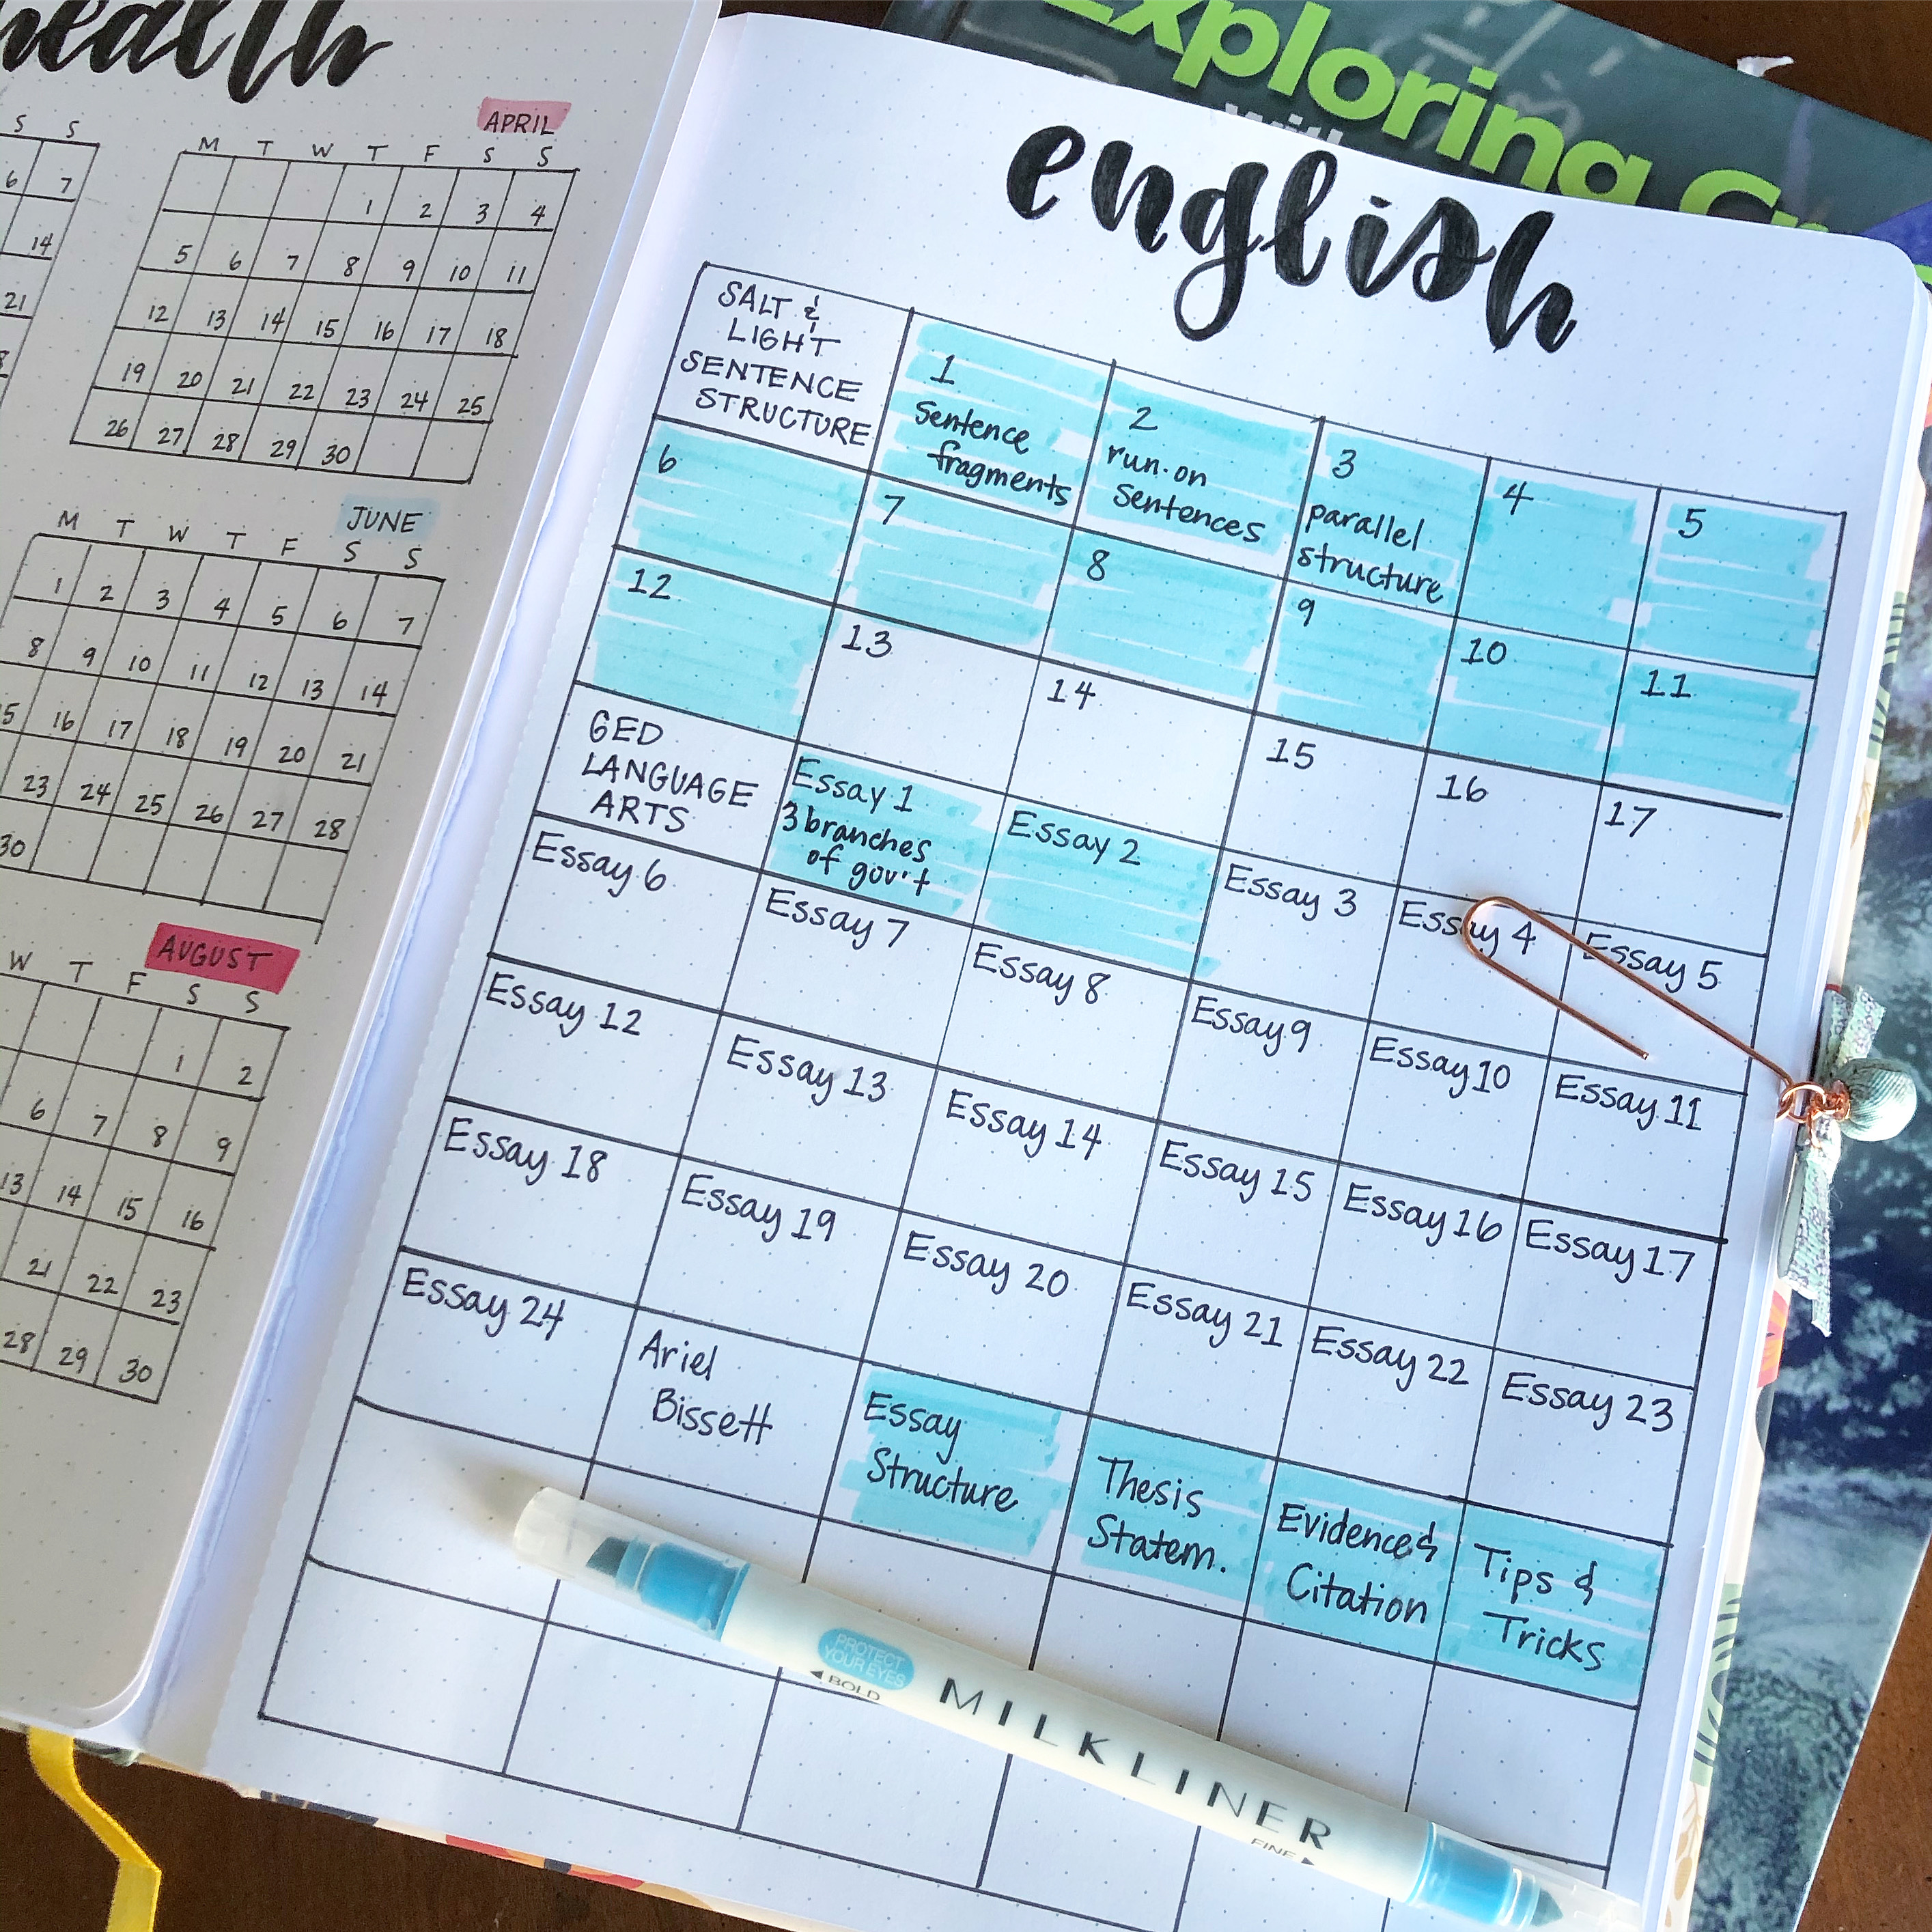 health
S S
6 7
14
21
APRIL
M T W T F S S
1 2 3 4
5 6 7 8 9 10 11
12 13 14 15 16 17 18
19 20 21 22 23 24 25
26 27 28 29 30
JUNE
M T W T F S S
1 2 3 4 5 6 7
8 9 10 11 12 13 14
15 16 17 18 19 20 21
23 24 25 26 27 28
30
AUGUST
W T F S S
1 2
6 7 8 9
13 14 15 16
21 22 23
28 29 30
Exploring
With
english
SALT &
LIGHT
SENTENCE
STRUCTURE
1
sentence
fragments
2
run-on
sentences
3
parallel
structure
4
5
6
7
8
9
10
11
12
13
14
15
16
17
GED
LANGUAGE
ARTS
Essay 1
3 branches
of gov't
Essay 2
Essay 3
Essay 4
Essay 5
Essay 6
Essay 7
Essay 8
Essay 9
Essay 10
Essay 11
Essay 12
Essay 13
Essay 14
Essay 15
Essay 16
Essay 17
Essay 18
Essay 19
Essay 20
Essay 21
Essay 22
Essay 23
Essay 24
Ariel
Bissett
Essay
Structure
Thesis
Statem.
Evidence &
Citation
Tips &
Tricks
PROTECT
YOUR EYES
BOLD
MILKLINER
FINE